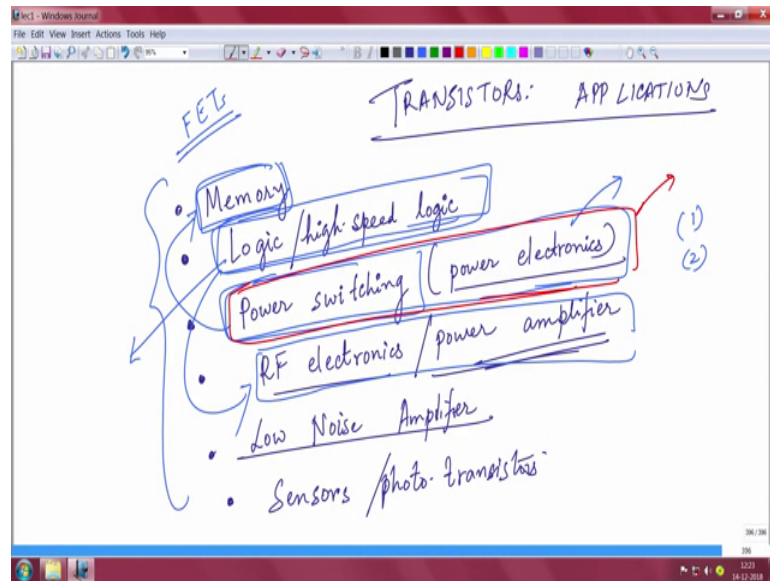 lec1 - Windows Journal
File Edit View Insert Actions Tools Help
96%
TRANSISTORS: APPLICATIONS
FETs
• Memory
• Logic / high-speed logic
• Power switching (power electronics)
(1)
(2)
• RF electronics / power amplifier
• Low Noise Amplifier
• Sensors / photo-transistors
396 / 396
396
12:23
14-12-2018